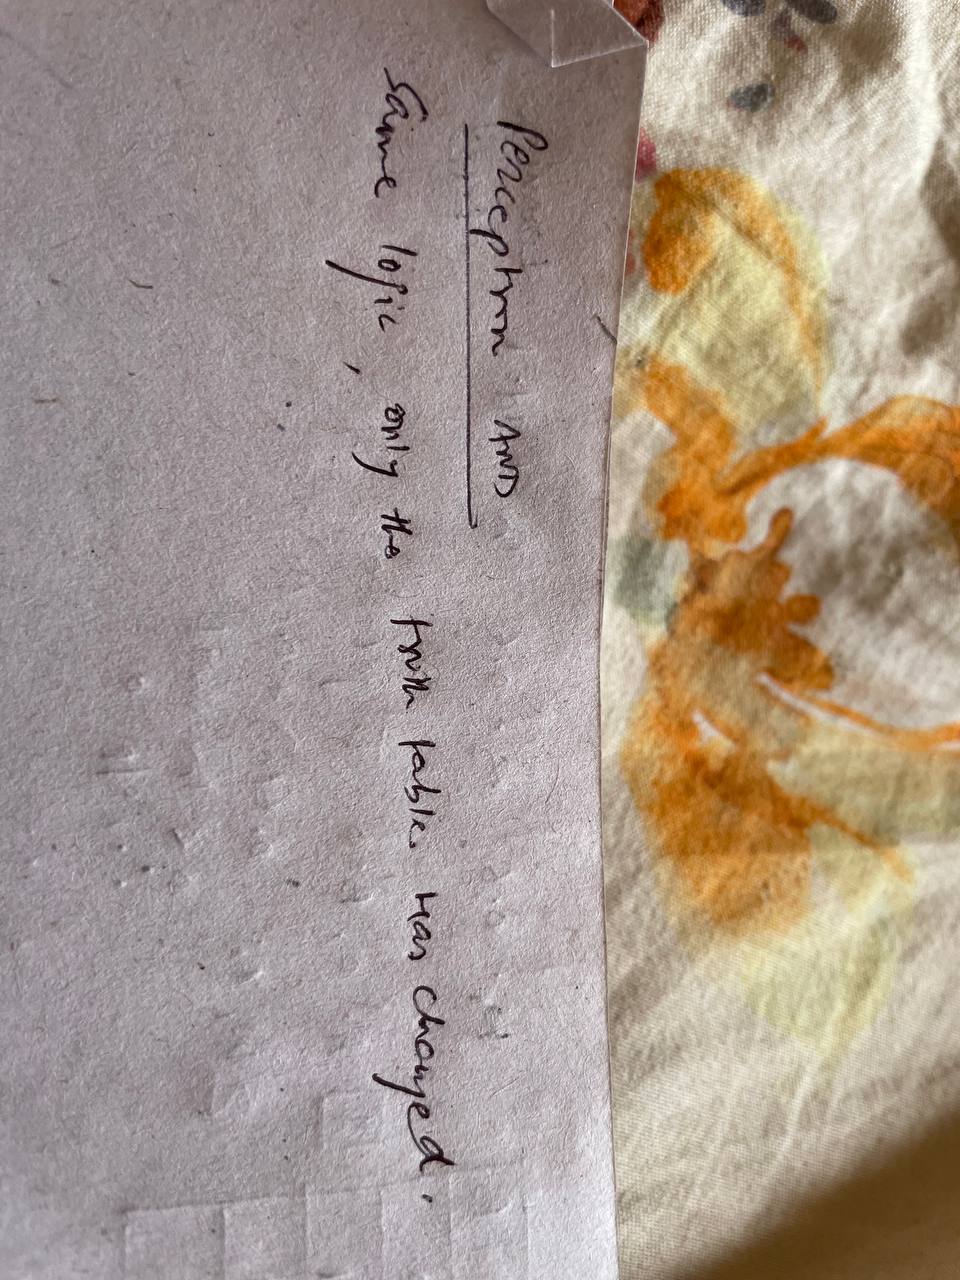 Perceptron AND
Same logic, only the truth table has changed.